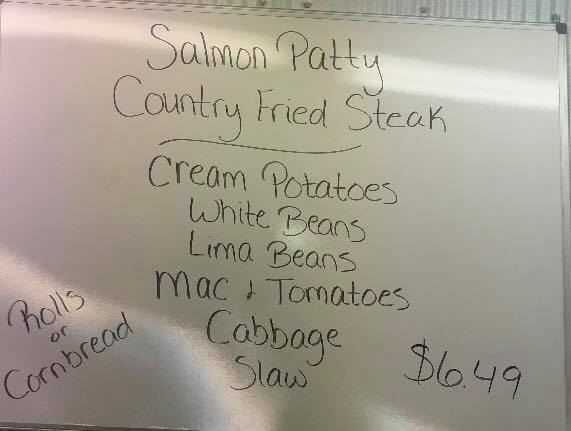 Salmon Patty
Country Fried Steak
Cream Potatoes
White Beans
Lima Beans
Mac & Tomatoes
Cabbage
Slaw
Rolls
or
Cornbread
$6.49